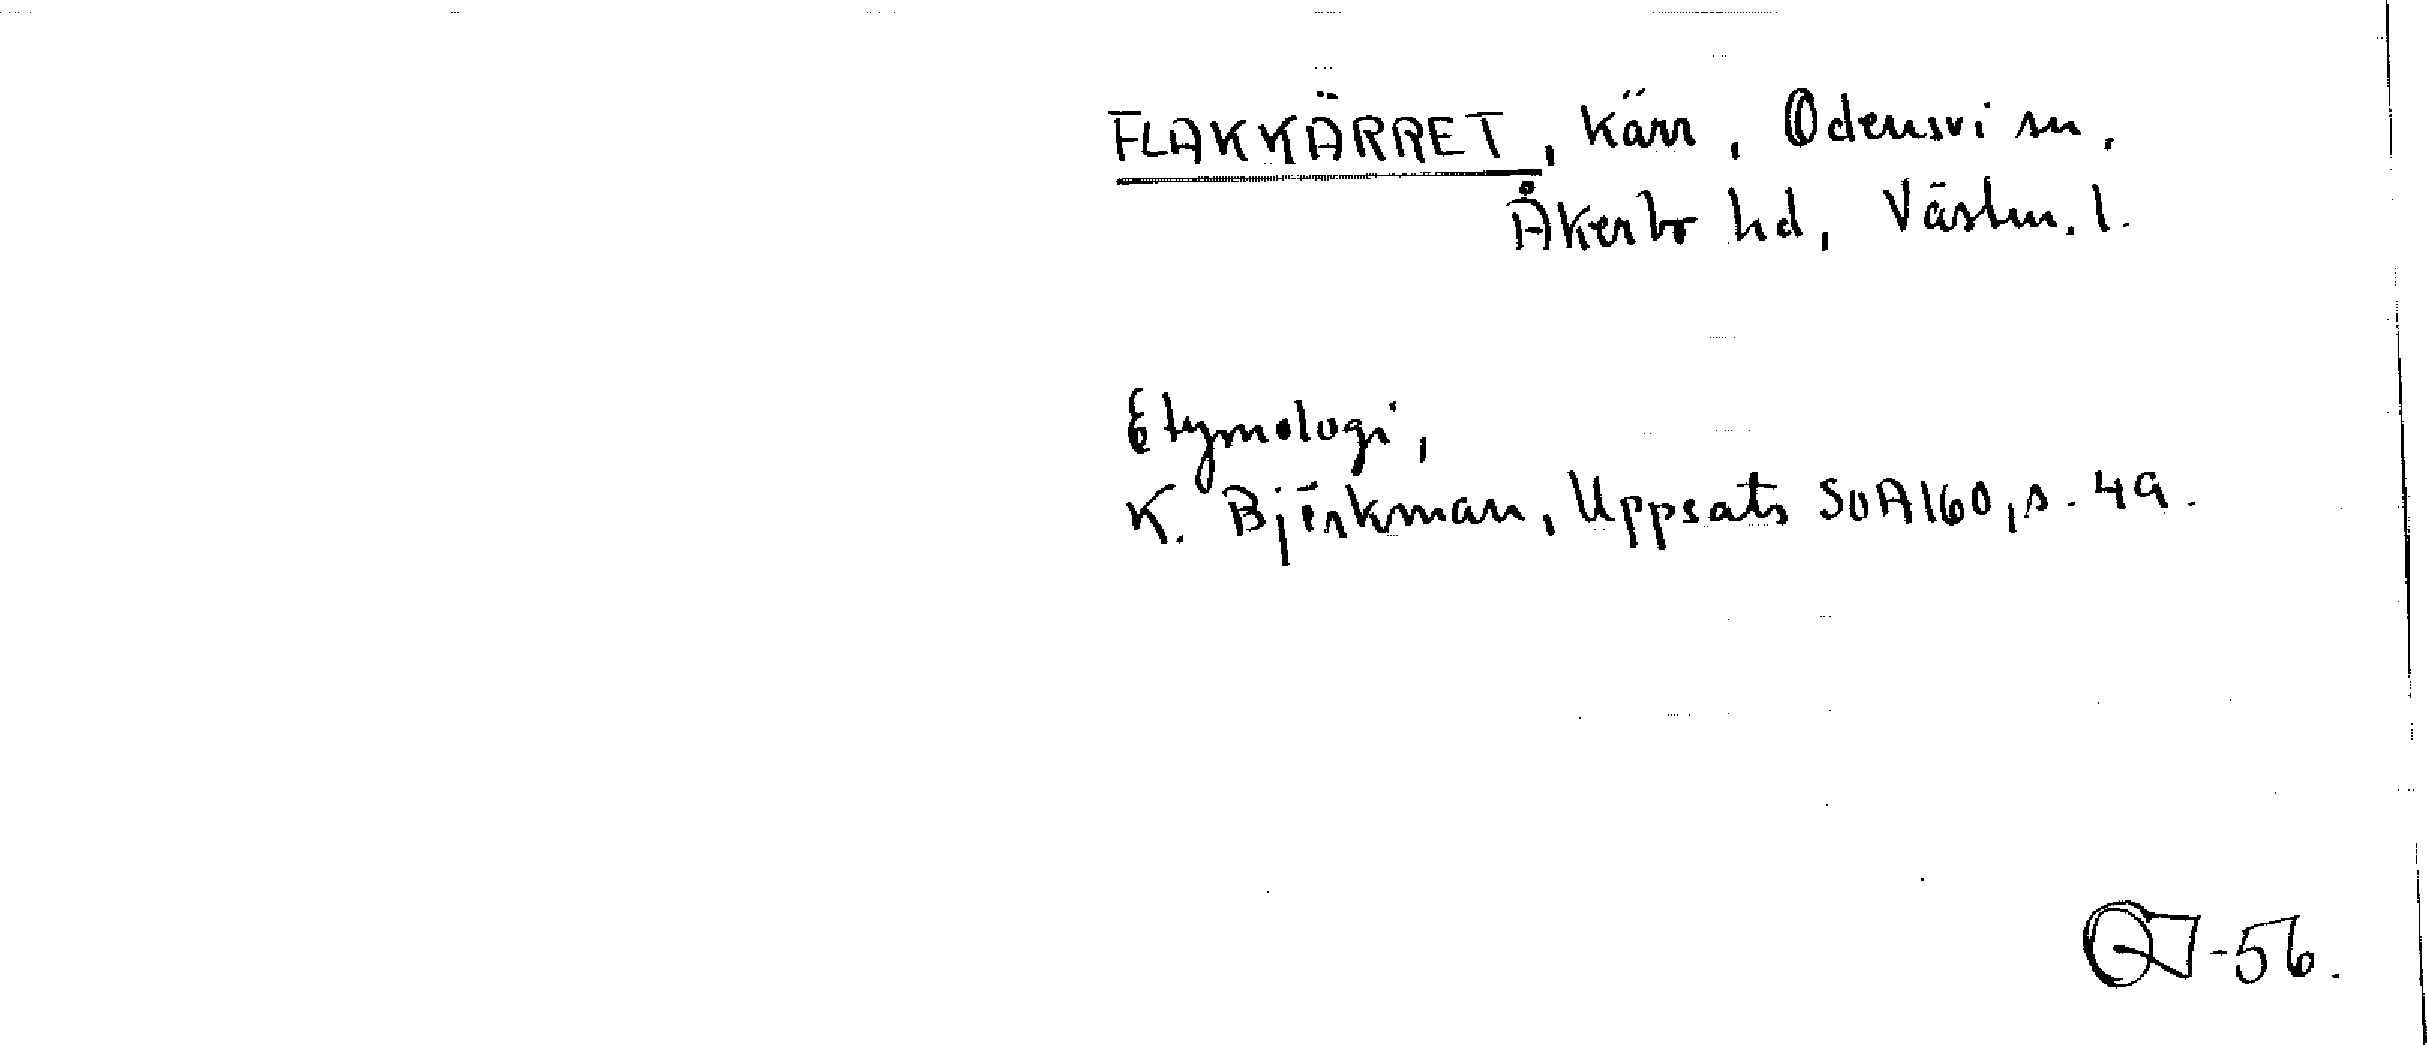 FLAKKÄRRET, Kärr, Odensvi sn,
Åkerbo hd, Västm. l.
Etymologi,
K. Björkman, Uppsats SOA160, s. 49.
-56.